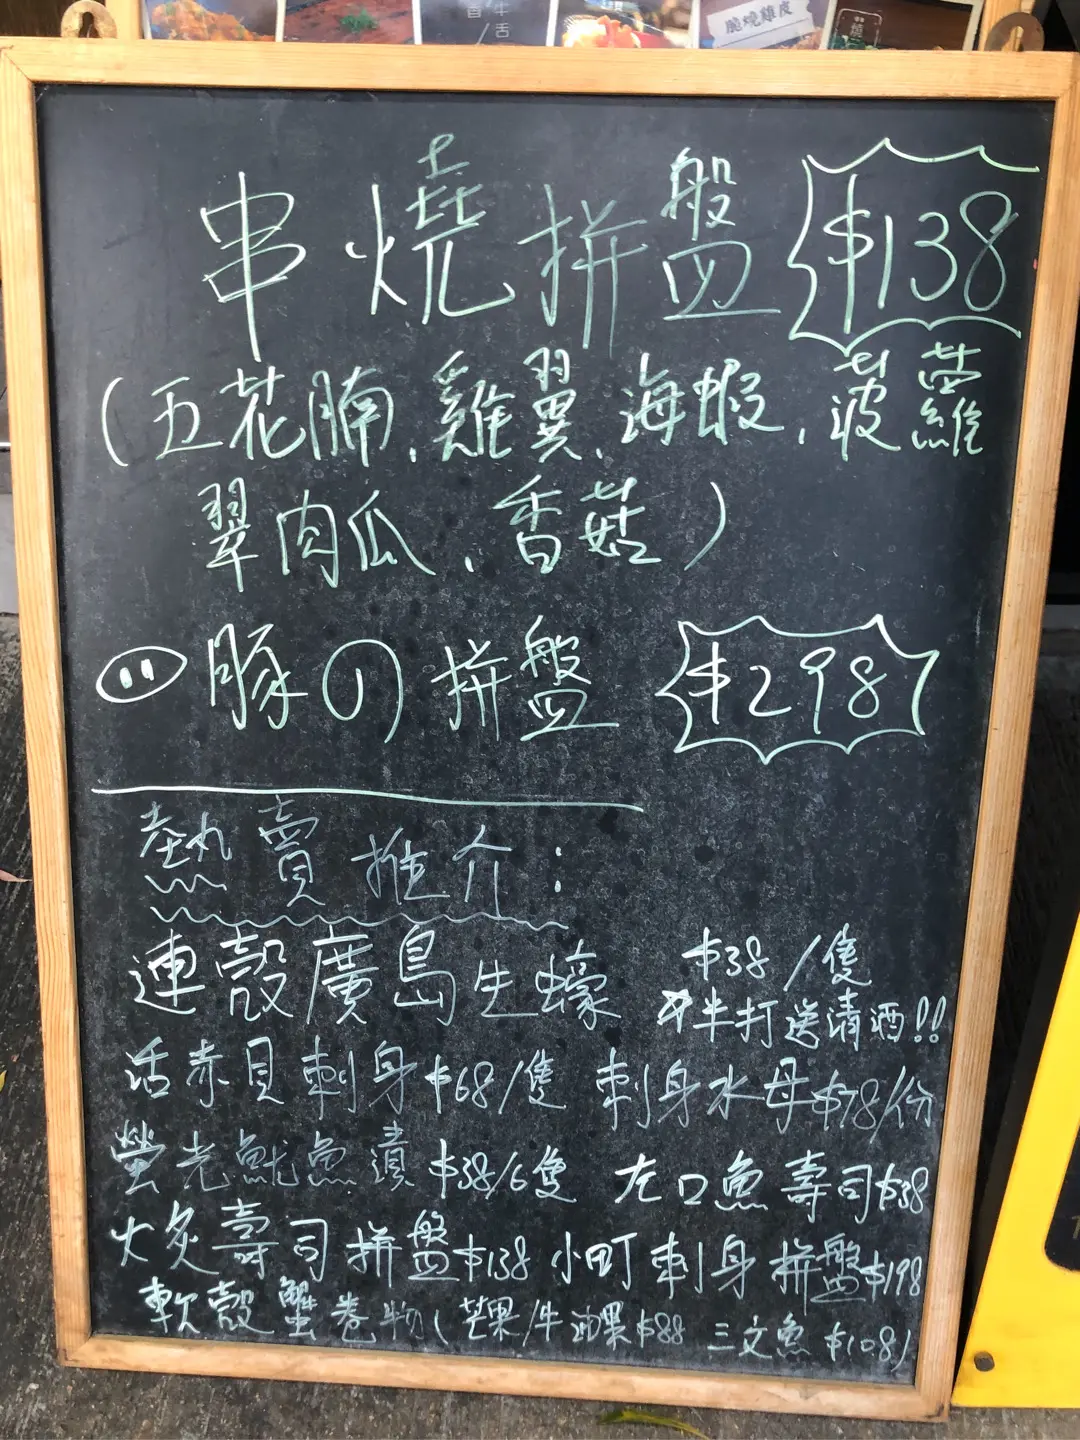 脆燒雞皮
串燒拼盤 $138
(五花腩、雞翼、海蝦、菠蘿
翠肉瓜、香菇)
豚の拼盤 $298
熱賣推介:
連殼廣島生蠔 $38/隻
半打送清酒!!
活赤貝刺身$68/隻 刺身水母$78/份
螢光魷魚漬$38/6隻 左口魚壽司$38
火炙壽司拼盤$138 小町刺身拼盤$198
軟殼蟹卷物(芒果/牛油果$88 三文魚$108)